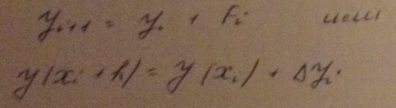 y_{i+1} = y_i + F_i или
y(x_i + h) = y(x_i) + Δy_i.